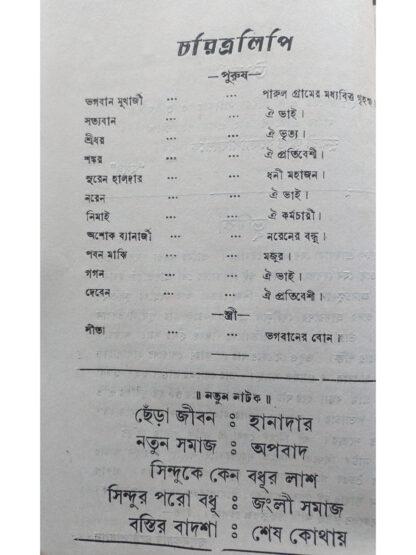 চরিত্রলিপি
—পুরুষ—
ভগবান মুখার্জী ... ... পারুল গ্রামের মধ্যবিত্ত গৃহস্থ
সত্যবান ... ... ঐ ভাই।
শ্রীধর ... ... ঐ ভৃত্য।
শঙ্কর ... ... ঐ প্রতিবেশী।
সুরেন হালদার ... ... ধনী মহাজন।
নরেন ... ... ঐ ভাই।
নিমাই ... ... ঐ কর্মচারী।
অশোক ব্যানার্জী ... ... নরেনের বন্ধু।
পবন মাঝি ... ... মজুর।
গগন ... ... ঐ ভাই।
দেবেন ... ... ঐ প্রতিবেশী।
—স্ত্রী—
সীতা ... ... ভগবানের বোন।
॥ নতুন নাটক ॥
ছেঁড়া জীবন ঃ হানাদার
নতুন সমাজ ঃ অপবাদ
সিন্দুকে কেন বধূর লাশ
সিন্দুর পরো বধূ ঃ জংলী সমাজ
বস্তির বাদশা ঃ শেষ কোথায়